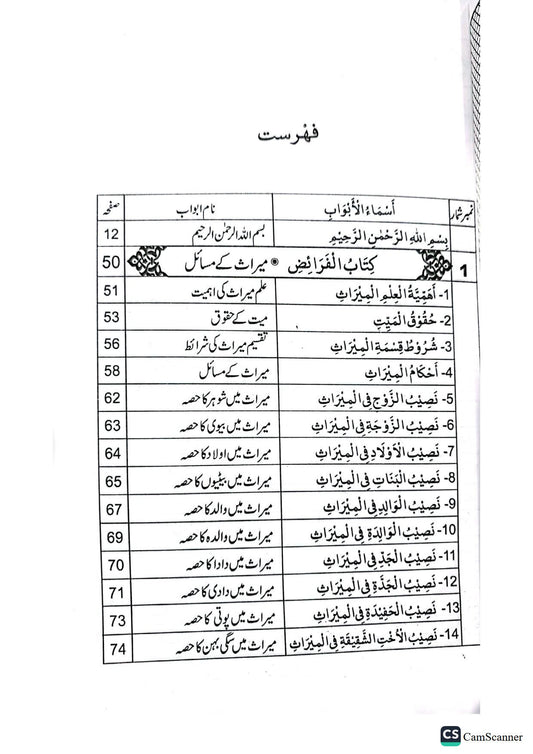 فہرست
نمبر شمار أَسْمَاءُ الْأَبْوَابِ نام ابواب صفحہ
بِسْمِ اللّٰهِ الرَّحْمٰنِ الرَّحِيْمِ بسم اللہ الرحمٰن الرحیم 12
1 كِتَابُ الْفَرَائِضِ * میراث کے مسائل 50
1- أَهَمِّيَّةُ الْعِلْمِ الْمِيْرَاثِ علم میراث کی اہمیت 51
2- حُقُوْقُ الْمَيِّتِ میت کے حقوق 53
3- شُرُوْطُ قِسْمَةِ الْمِيْرَاثِ تقسیم میراث کی شرائط 56
4- أَحْكَامُ الْمِيْرَاثِ میراث کے مسائل 58
5- نَصِيْبُ الزَّوْجِ فِي الْمِيْرَاثِ میراث میں شوہر کا حصہ 62
6- نَصِيْبُ الزَّوْجَةِ فِي الْمِيْرَاثِ میراث میں بیوی کا حصہ 63
7- نَصِيْبُ الْأَوْلَادِ فِي الْمِيْرَاثِ میراث میں اولاد کا حصہ 64
8- نَصِيْبُ الْبَنَاتِ فِي الْمِيْرَاثِ میراث میں بیٹیوں کا حصہ 65
9- نَصِيْبُ الْوَالِدِ فِي الْمِيْرَاثِ میراث میں والد کا حصہ 67
10- نَصِيْبُ الْوَالِدَةِ فِي الْمِيْرَاثِ میراث میں والدہ کا حصہ 69
11- نَصِيْبُ الْجَدِّ فِي الْمِيْرَاثِ میراث میں دادا کا حصہ 70
12- نَصِيْبُ الْجَدَّةِ فِي الْمِيْرَاثِ میراث میں دادی کا حصہ 71
13- نَصِيْبُ الْحَفِيْدَةِ فِي الْمِيْرَاثِ میراث میں پوتی کا حصہ 73
14- نَصِيْبُ الْأُخْتِ الشَّقِيْقَةِ فِي الْمِيْرَاثِ میراث میں سگی بہن کا حصہ 74
CS CamScanner